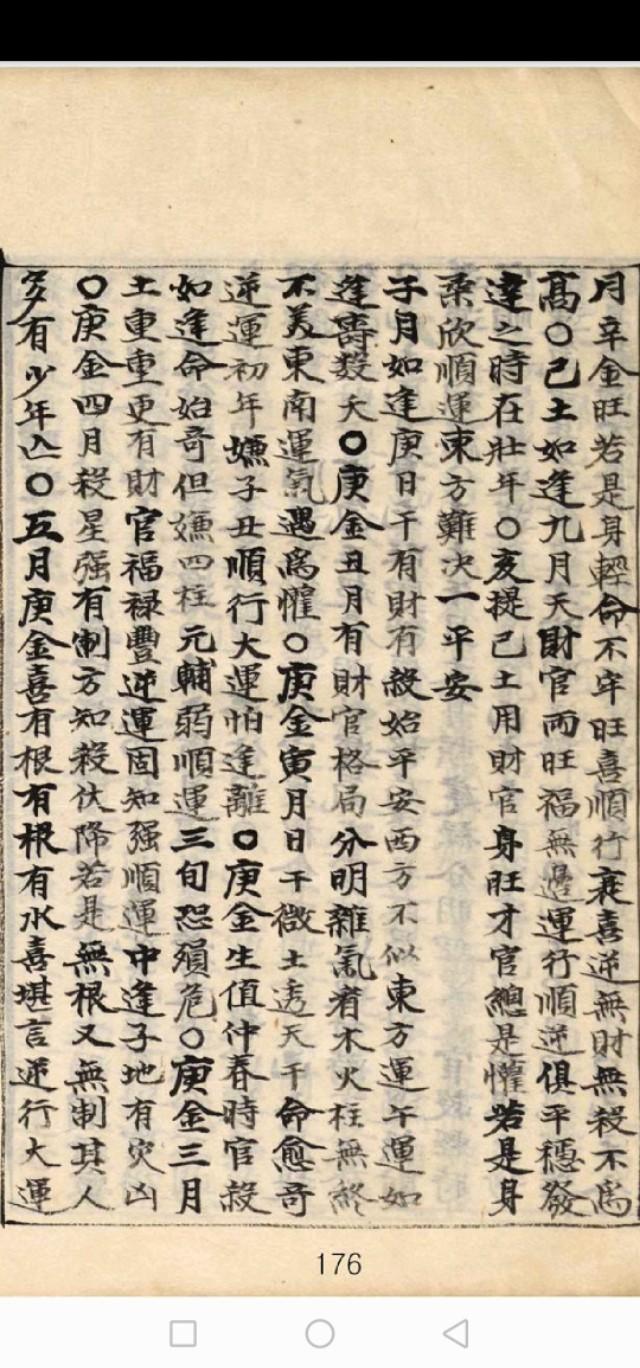 月辛金旺若是身輕命不牢旺喜順行衰喜逆無財無殺不爲
高〇己土如逢九月天財官両旺福無邊運行順逆俱平穩發
達之時在壯年〇亥提己土用財官身旺才官總是懽若是身
柔欣順運東方難决一平安
子月如逢庚日干有財有殺始平安西方不似東方運午運如
逢壽数夭〇庚金丑月有財官格局分明雜氣者木火柱無終
不美東南運氣遇爲懽〇庚金寅月日干微土透天干命愈奇
逆運初年嫌子丑順行大運怕逢離〇庚金生值仲春時官殺
如逢命始奇但嫌四柱元輔弱順運三旬恐殞危〇庚金三月
土重重更有財官福禄豐逆運固知强順運中逢子地有灾凶
〇庚金四月殺星强有制方知殺伏降若是無根又無制其人
多有少年亾〇五月庚金喜有根有根有水喜堪言逆行大運
176